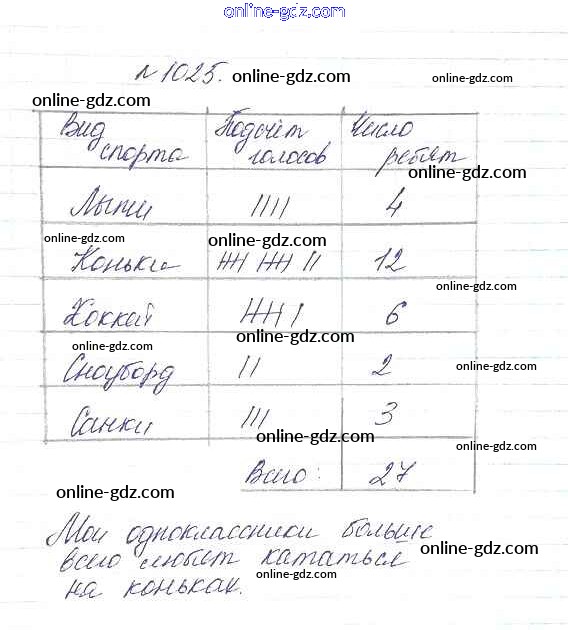 online-gdz.com
№1025.
online-gdz.com
online-gdz.com
online-gdz.com
Вид спорта Подсчёт голосов Число ребят
online-gdz.com
Лыжи |||| 4
online-gdz.com
online-gdz.com
online-gdz.com
Коньки 12
online-gdz.com
Хоккей 6
online-gdz.com
online-gdz.com
Сноуборд || 2
online-gdz.com
Санки ||| 3
online-gdz.com
online-gdz.com
Всего: 27
online-gdz.com
Мои одноклассники больше
всего любят кататься
на коньках.
online-gdz.com
online-gdz.com
online-gdz.com